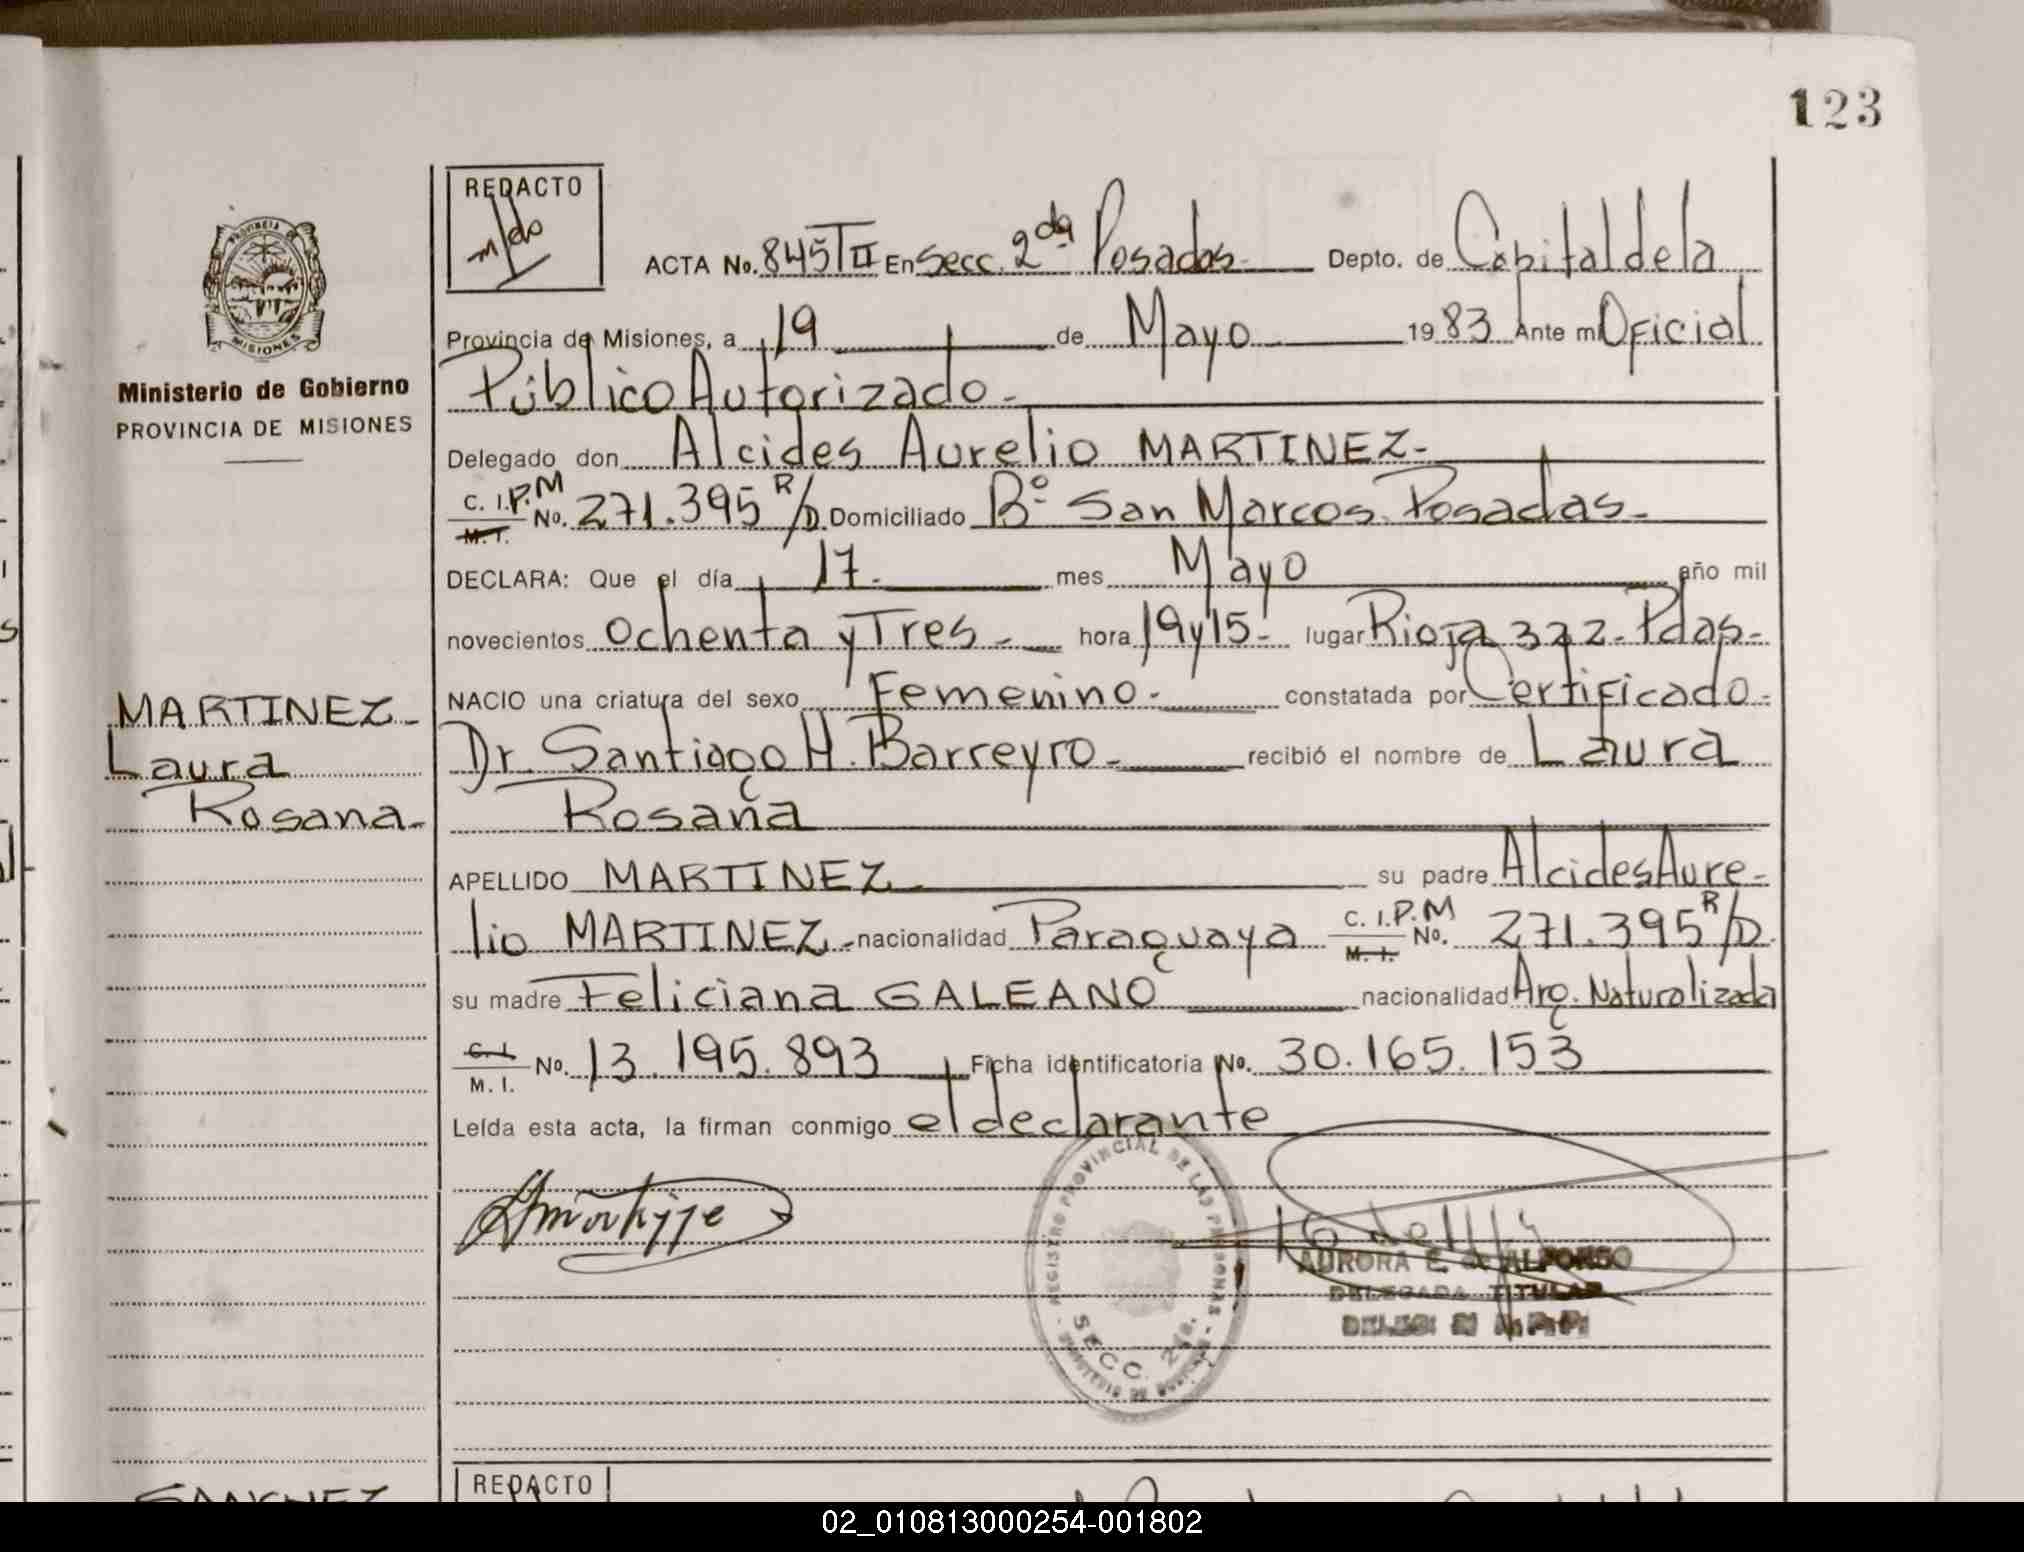 123
REDACTO
ACTA No. 845 T II En Secc. 2da Posadas Depto. de Capital de la
Provincia de Misiones, a 19 de Mayo 1983 Ante mi Oficial
Público Autorizado
PROVINCIA DE
MISIONES
Ministerio de Gobierno
PROVINCIA DE MISIONES
Delegado don Alcides Aurelio MARTINEZ
C. I.P.M No. 271.395 R/D. Domiciliado Bº San Marcos. Posadas
M. I.
DECLARA: Que el día 17 mes Mayo año mil
novecientos ochenta y Tres hora 19 y 15 lugar Rioja 322 - Pdas
NACIO una criatura del sexo Femenino constatada por Certificado
Dr. Santiago H. Barreyro recibió el nombre de Laura
Rosana
MARTINEZ
Laura
Rosana
APELLIDO MARTINEZ su padre Alcides Aure-
lio MARTINEZ nacionalidad Paraguaya C. I.P.M No. 271.395 R/D.
M. I.
su madre Feliciana GALEANO nacionalidad Arg. Naturalizada
C. I.
M. I. No. 13.195.893 Ficha identificatoria No. 30.165.153
Leída esta acta, la firman conmigo el declarante
REGISTRO PROVINCIAL DE LAS PERSONAS
SECC. 2da.
AURORA E. de ALFONSO
DELEGADA TITULAR
SANCHEZ
REDACTO
02_010813000254-001802